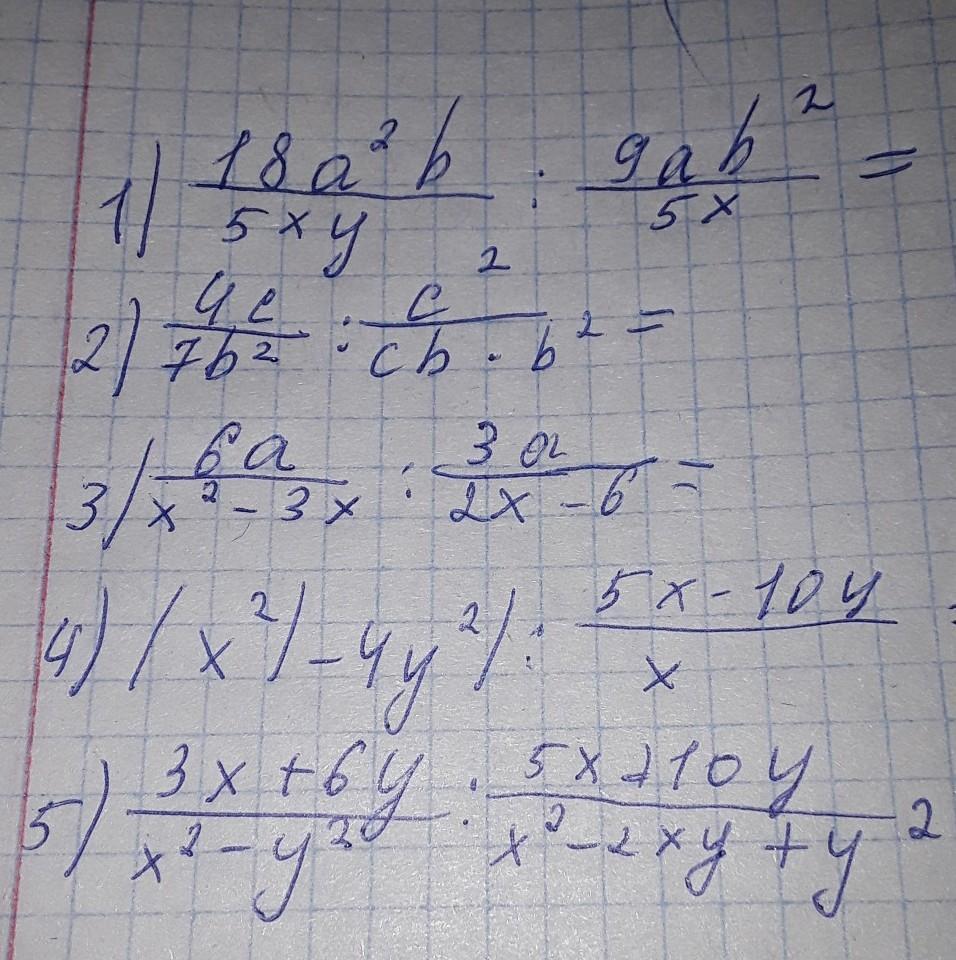 1) 18a²b/5xy : 9ab²/5x =
2) 4c/7b² : c²/cb · b² =
3) 6a/x² - 3x : 3a/2x - 6 =
4) (x²) - 4y²) : 5x - 10y/x =
5) 3x + 6y/x² - y² : 5x + 10y/x² - 2xy + y²